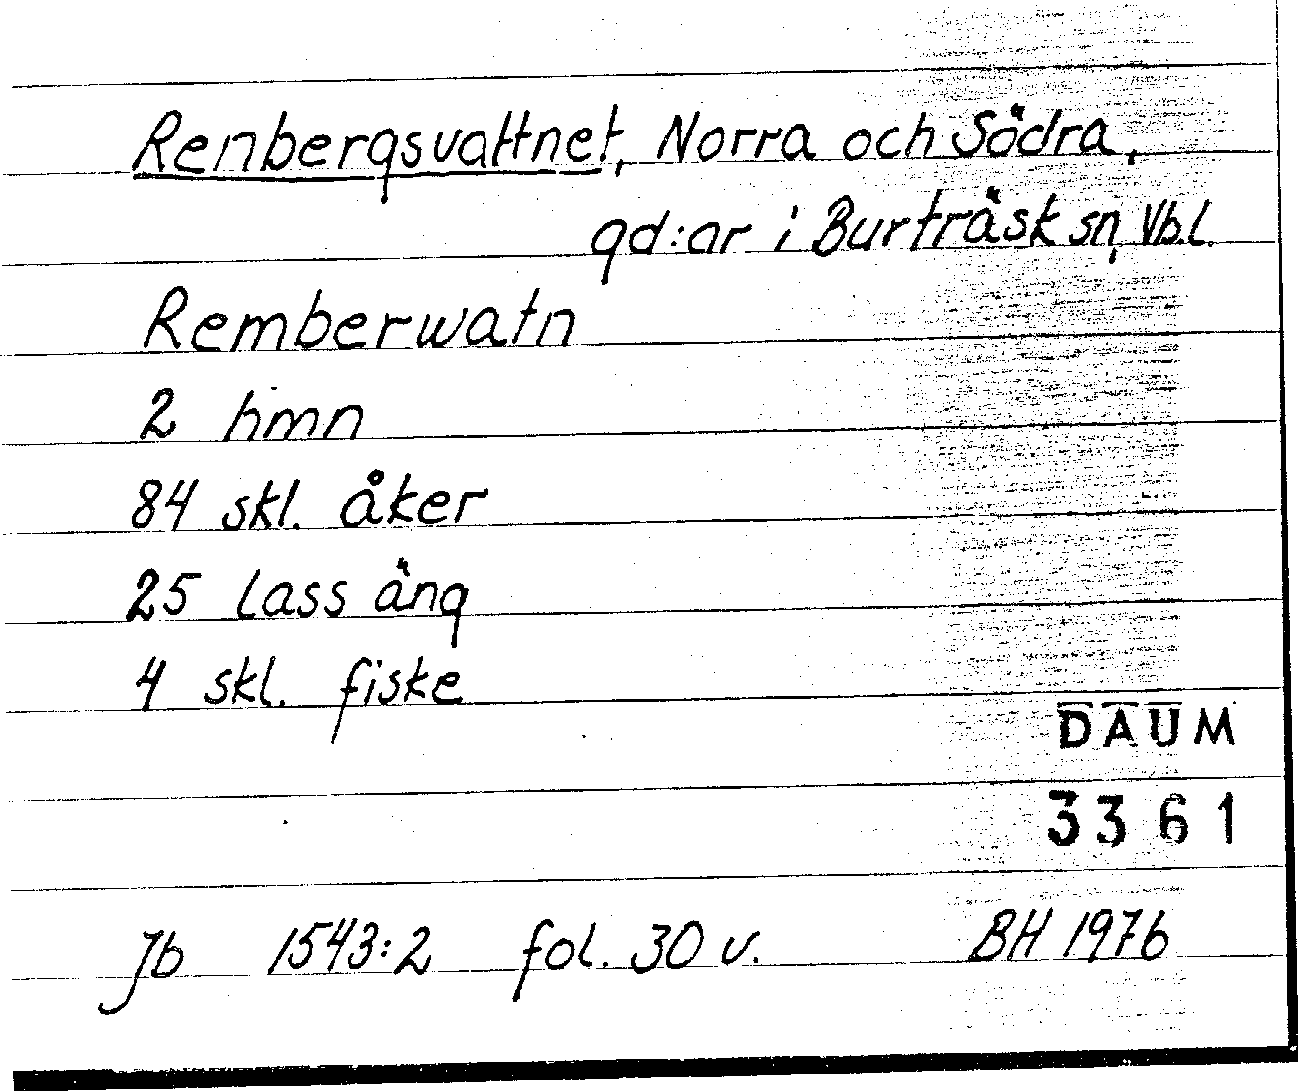 Renbergsvattnet, Norra och Södra,
gd:ar i Burträsk sn, Vb.l.
Remberwatn
2 hmn
84 skl. åker
25 lass äng
4 skl. fiske
DAUM
3361
Jb 1543:2 fol. 30 v. BH 1976